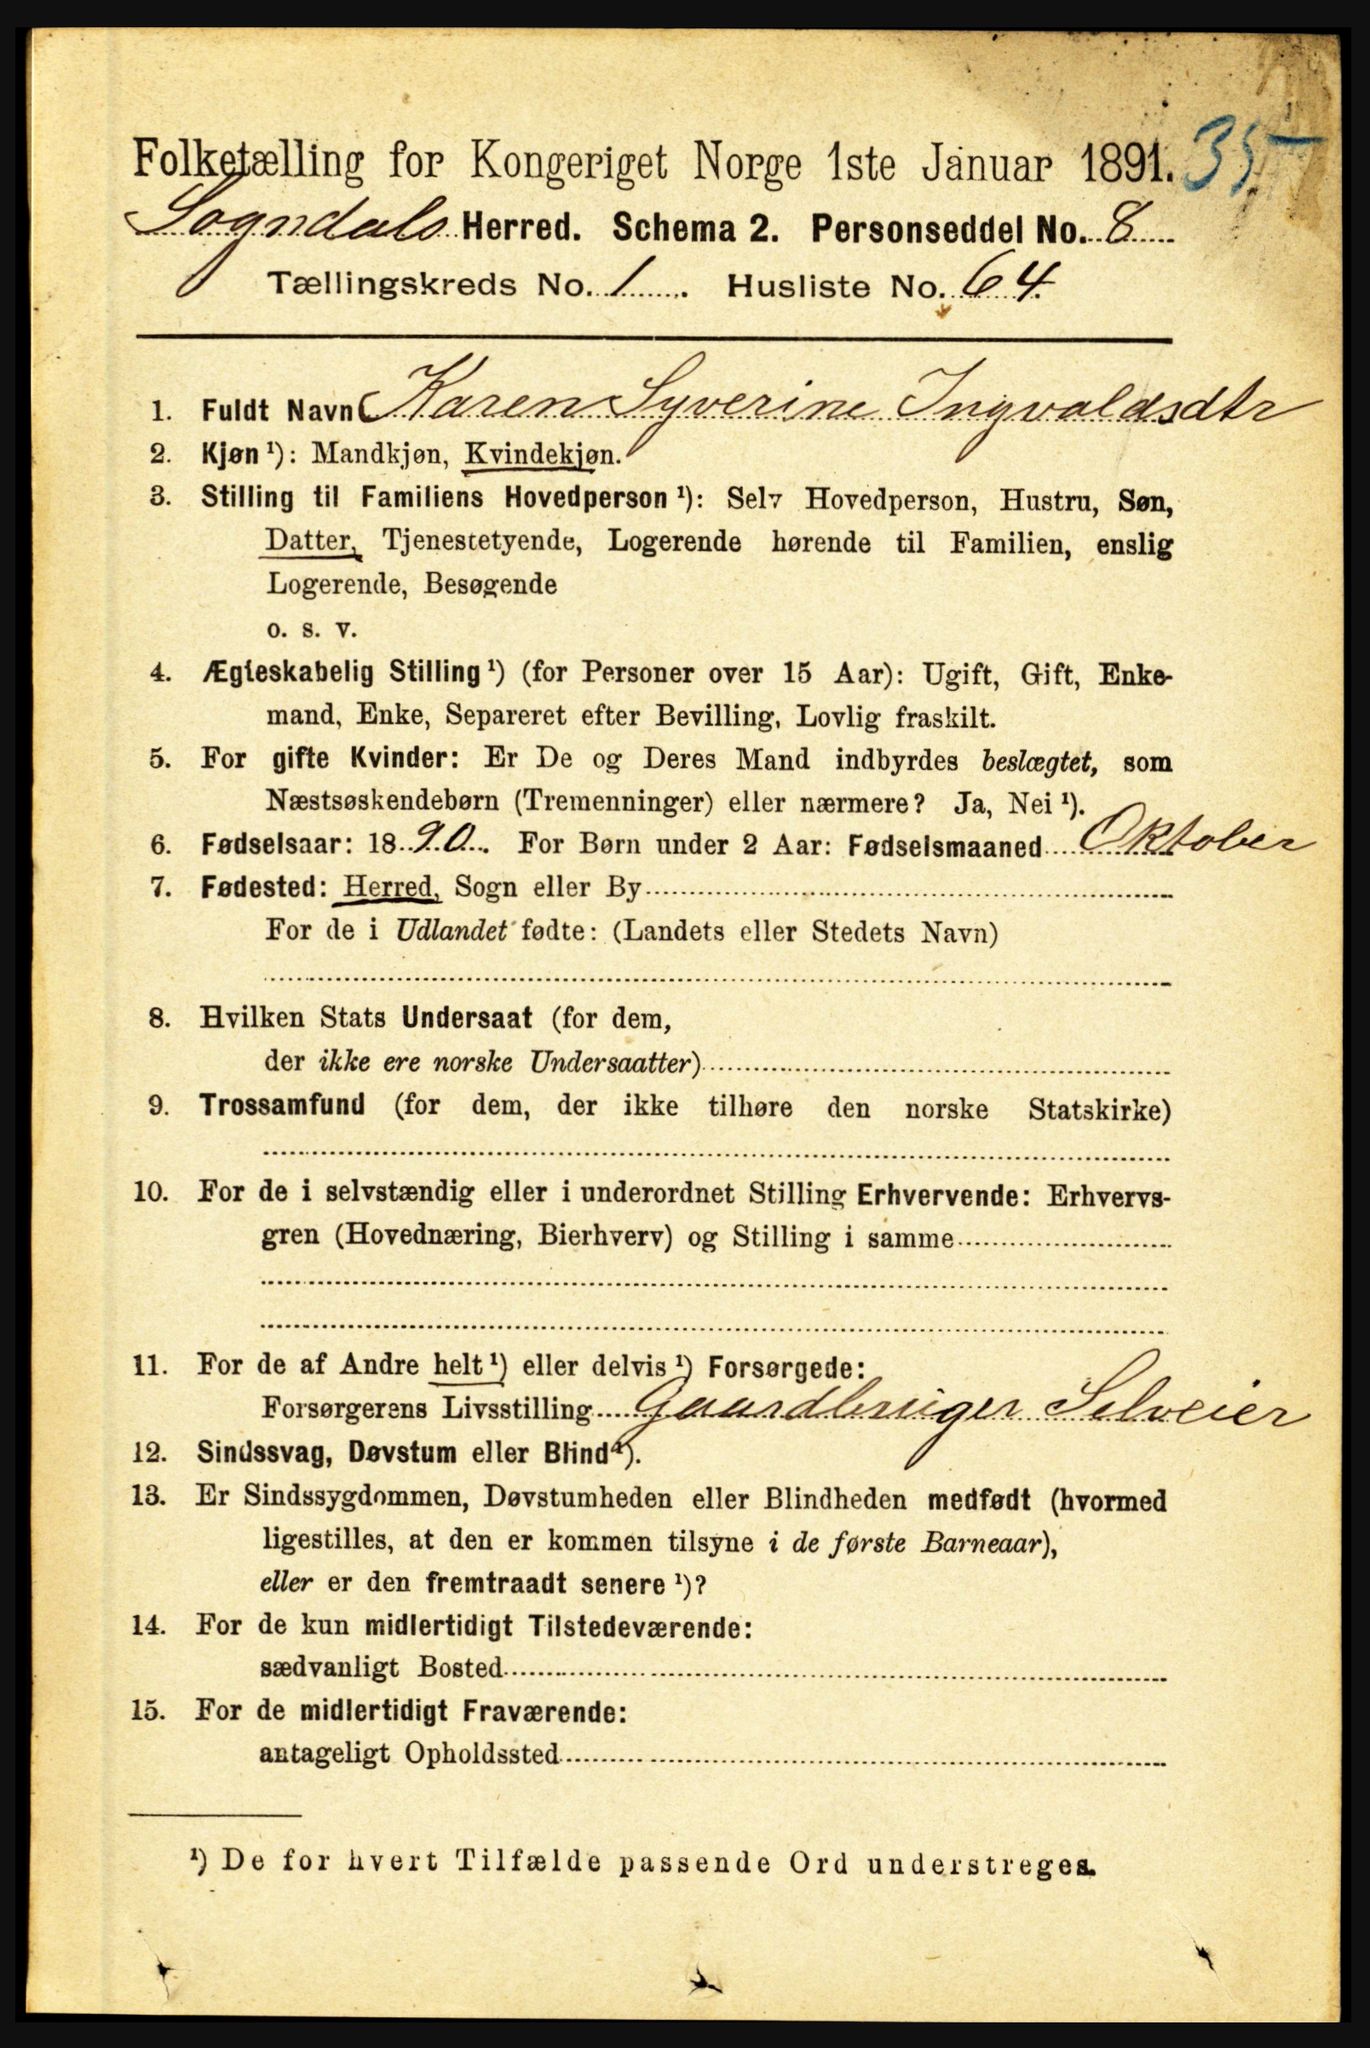 Folketælling for Kongeriget Norge 1ste Januar 1891. 35
Sogndals Herred. Schema 2. Personseddel No. 8
Tællingskreds No. 1. Husliste No. 64.
1. Fuldt Navn Karen Syverine Ingvaldsdtr
2. Kjøn ¹): Mandkjøn, Kvindekjøn.
3. Stilling til Familiens Hovedperson ¹): Selv Hovedperson, Hustru, Søn,
Datter, Tjenestetyende, Logerende hørende til Familien, enslig
Logerende, Besøgende
o. s. v.
4. Ægteskabelig Stilling ¹) (for Personer over 15 Aar): Ugift, Gift, Enke-
mand, Enke, Separeret efter Bevilling, Lovlig fraskilt.
5. For gifte Kvinder: Er De og Deres Mand indbyrdes beslægtet, som
Næstsøskendebørn (Tremenninger) eller nærmere? Ja, Nei ¹).
6. Fødselsaar: 1890. For Børn under 2 Aar: Fødselsmaaned Oktober
7. Fødested: Herred, Sogn eller By
For de i Udlandet fødte: (Landets eller Stedets Navn)
8. Hvilken Stats Undersaat (for dem,
der ikke ere norske Undersaatter)
9. Trossamfund (for dem, der ikke tilhøre den norske Statskirke)
10. For de i selvstændig eller i underordnet Stilling Erhvervende: Erhvervs-
gren (Hovednæring, Bierhverv) og Stilling i samme
11. For de af Andre helt ¹) eller delvis ¹) Forsørgede:
Forsørgerens Livsstilling Gaardbruger Selveier
12. Sindssvag, Døvstum eller Blind ¹).
13. Er Sindssygdommen, Døvstumheden eller Blindheden medfødt (hvormed
ligestilles, at den er kommen tilsyne i de første Barneaar),
eller er den fremtraadt senere ¹)?
14. For de kun midlertidigt Tilstedeværende:
sædvanligt Bosted
15. For de midlertidigt Fraværende:
antageligt Opholdssted
¹) De for hvert Tilfælde passende Ord understreges.